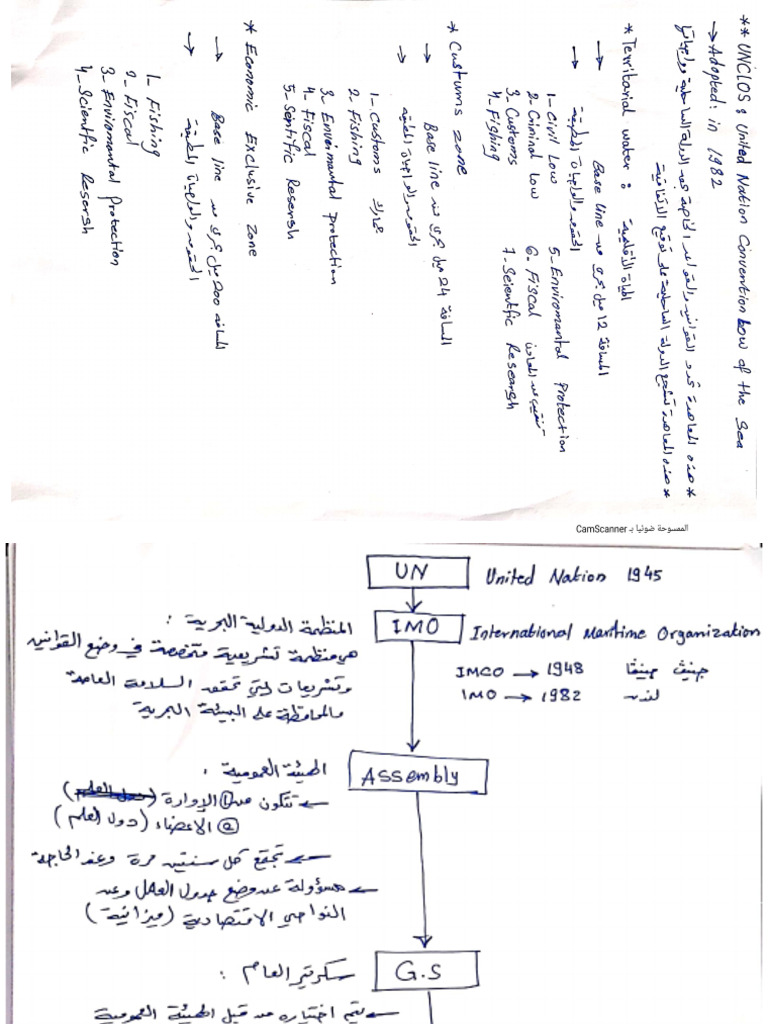 ** UNClOS : United Nation Convention Low of the Sea
→ Adopted: in 1982
* هذه المعاهدة تحدد القوانين والقواعد الخاصة
* هذه المعاهدة تشجع الدولة الساحلية على توقيع الاتفاقية
* Territorial water : المياة الأقلمية
→ Base line المسافة 12 ميل بحري من
→ الحقوق والواجبات
1- Civil Low
2- Criminal low
3- Customs
4- Fishing
5- Enviromantal protection
6- Fiscal
7- Scientfic Research
* Custums zone
→ Base line المسافة 24 ميل بحري من
→ الحقوق والواجبات
1- Customs جمارك
2- Fishing
3- Envirmantal protection
4- Fiscal
5- Sentific Resersh
* Economic Exclusive Zone
→ Base line المسافه 200 ميل بحري من
→ الحقوق والواجبات
1- Fishing
2- Fiscal
3- Enviromantal Protection
4- Scientfic Resersh
الممسوحة ضوئيا بـ CamScanner
UN United Nation 1945
IMO International Maritime Organization
المنظمة الدولية البحرية :
هي منظمة تشريعية متخصصة في وضع القوانين
وتشريعات التي تحقق السلامة العامة
والمحافظة على البيئة البحرية
IMCO → 1948 جنيف
IMO → 1982 لندن
Assembly الهيئة العمومية :
← تتكون من ① الإدارة
② الاعضاء (دول العلم)
← تجتمع كل سنتين مرة وعند الحاجة
← مسؤولة عن وضع جدول العمل وعن
النواحي الاقتصادية (ميزانية)
G.S سكرتير العام :
← يتم اختياره من قبل الهيئة العمومية